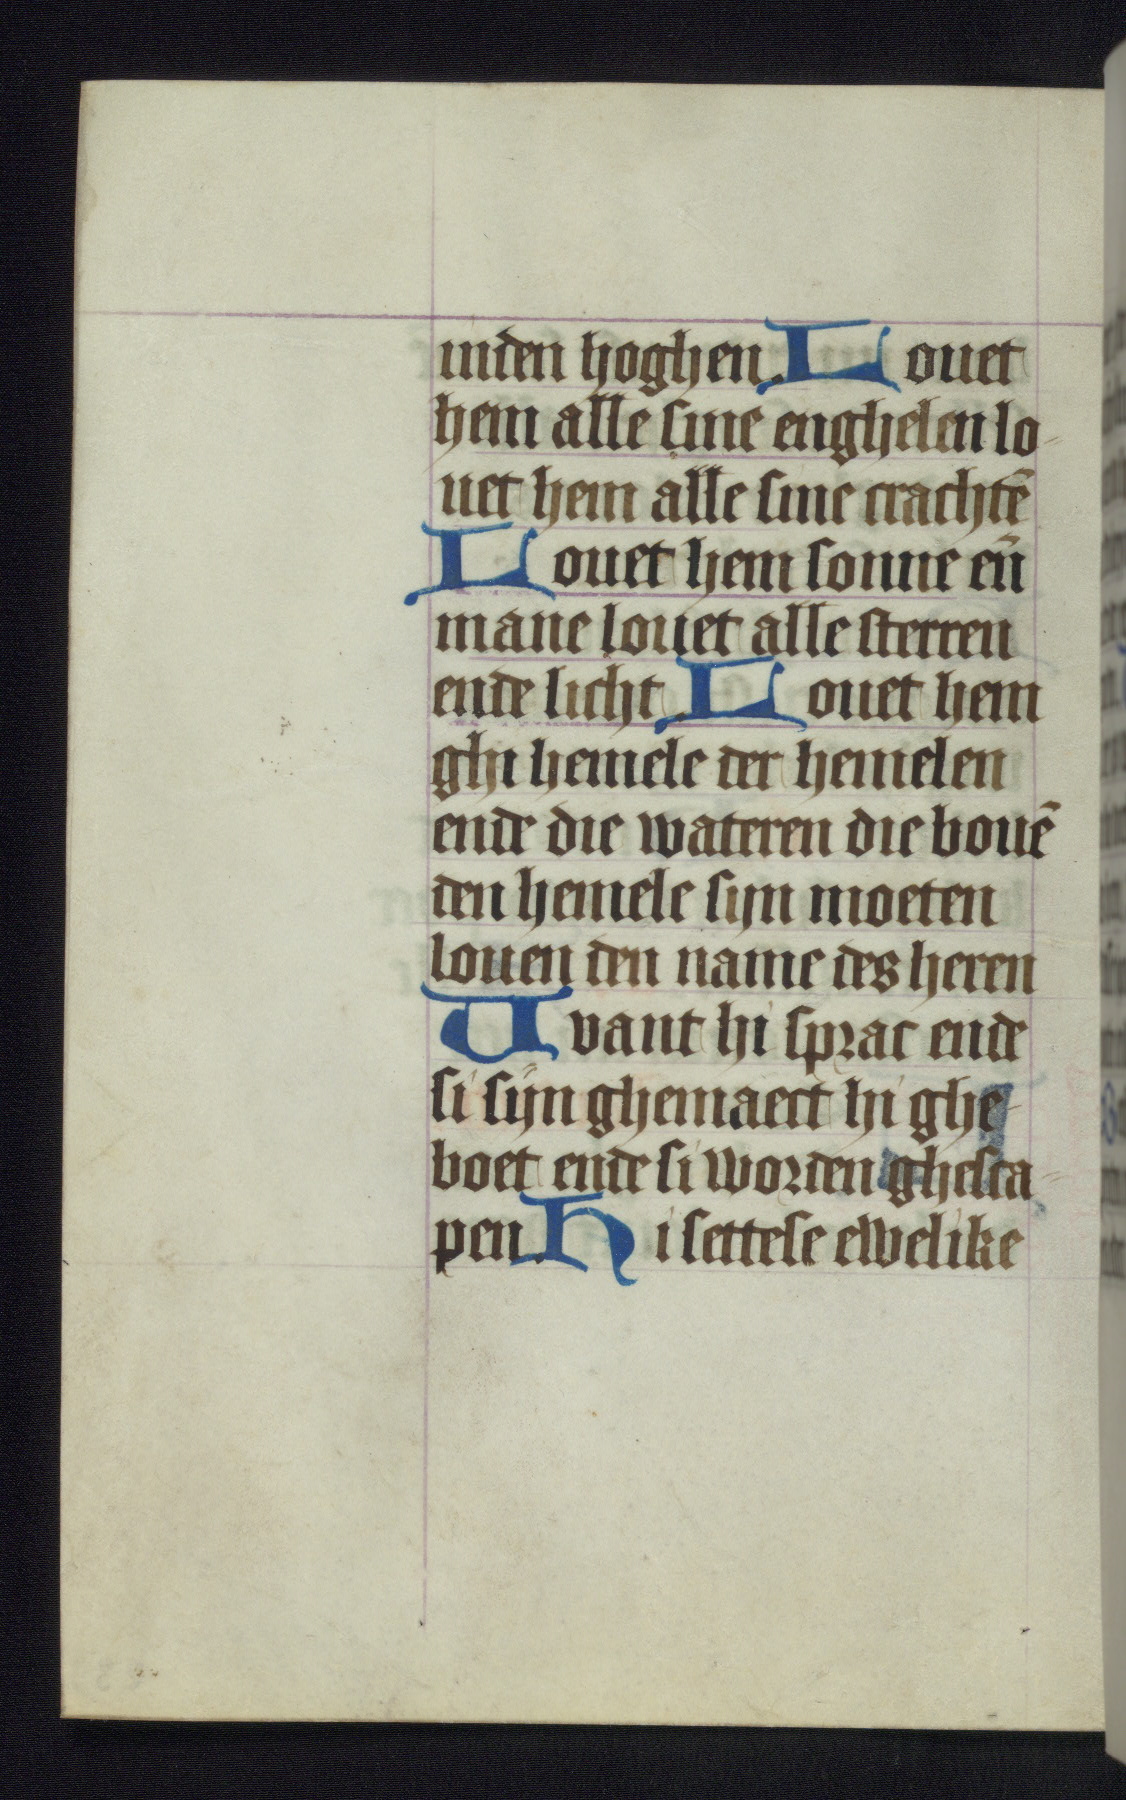 inden hoghen. Louet
hem alle sine enghelen lo-
uet hem alle sine crachtē
Louet hem sonne en̄
mane louet alle sterren
ende licht. Louet hem
ghi hemele der hemelen
ende die wateren die bouē
den hemele sijn moeten
louen den name des heren
Uvant hi sprac ende
si sijn ghemaect hi ghe-
boet ende si worden ghesca-
pen. Hi settese ewelike